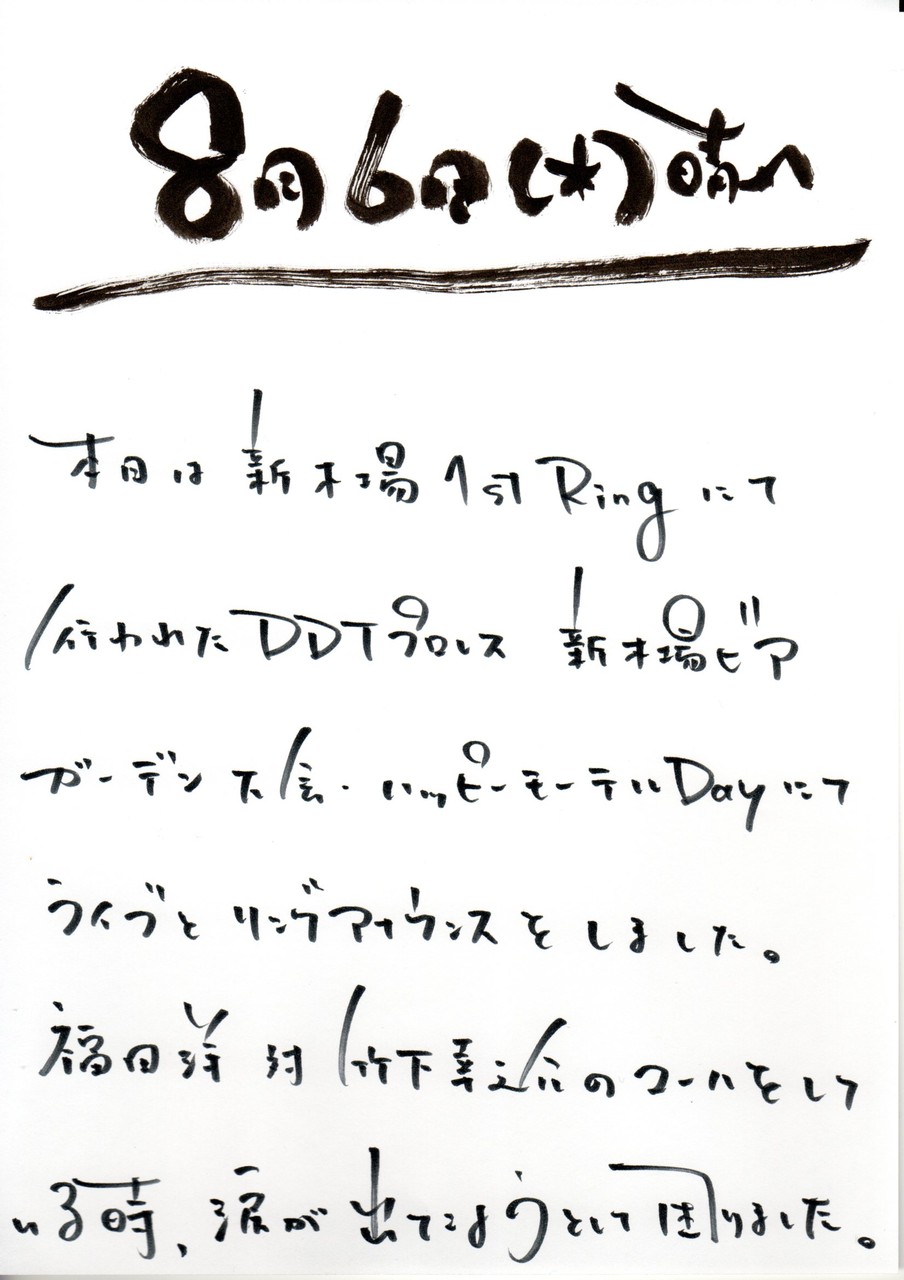 8月6日(水)晴れ
本日は新木場1stRingにて
行われたDDTプロレス 新木場ビア
ガーデン大会・ハッピーモーテルDayにて
ライブとリングアナウンスをしました。
福田洋対竹下幸之介のコールをして
いる時、涙が出てこようとして困りました。